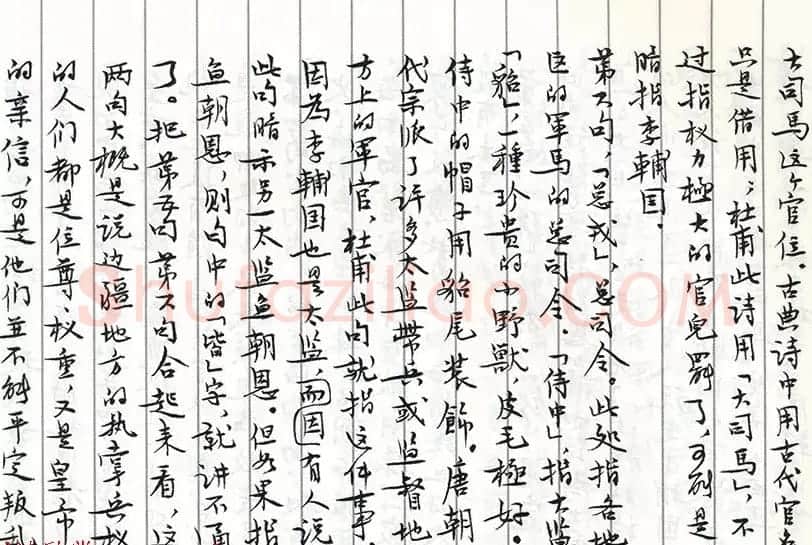 大司馬这个官位。古典诗中用古代官
只是借用;杜甫此诗用「大司馬」,不
过指权力極大的官兒罷了,是
暗指李輔国.
第六句,「总戎」,总司令。此处指各地
区的軍馬的总司令.「侍中」,指太监
「貂」,一種珍贵的小野獸,皮毛極好。
侍中的帽子用貂尾装飾。唐朝
代宗派了许多太监带兵或监督地
方上的军官,杜甫此句就指这件事.
因為李輔国也是太监,而因有人说
此句暗示另一太监鱼朝恩。但如果指
鱼朝恩,则句中的「皆」字,就讲不通
了。把第五句第六句合起来看,这
两句大概是说边疆地方的执掌兵权
的人们都是位尊、权重,又是皇帝
的亲信,可是他们並不能平定叛乱
Shufaziliao.com